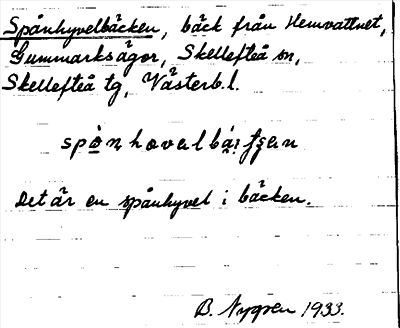 Spånhyvelbäcken, bäck från Hemvattnet,
Gummarksågor, Skellefteå sn,
Skellefteå tg, Västerb.l.
Det är en spånhyvel i bäcken.
B. Nygren 1933.